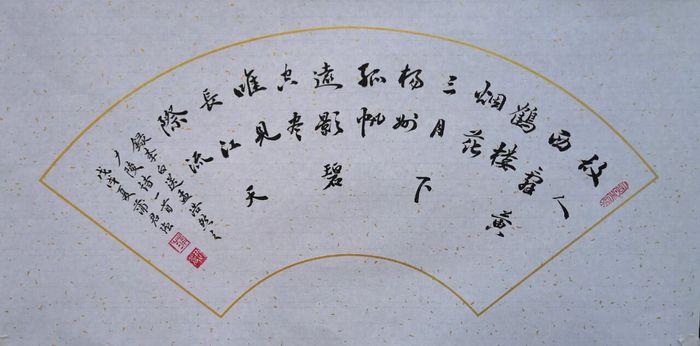 故人
西辭黃
鶴樓
烟花
三月下
楊州
孤帆
遠影碧
空盡
唯見
長江天
際流
錄李白送孟浩然之
广陵詩一首
戊戌夏蒲君